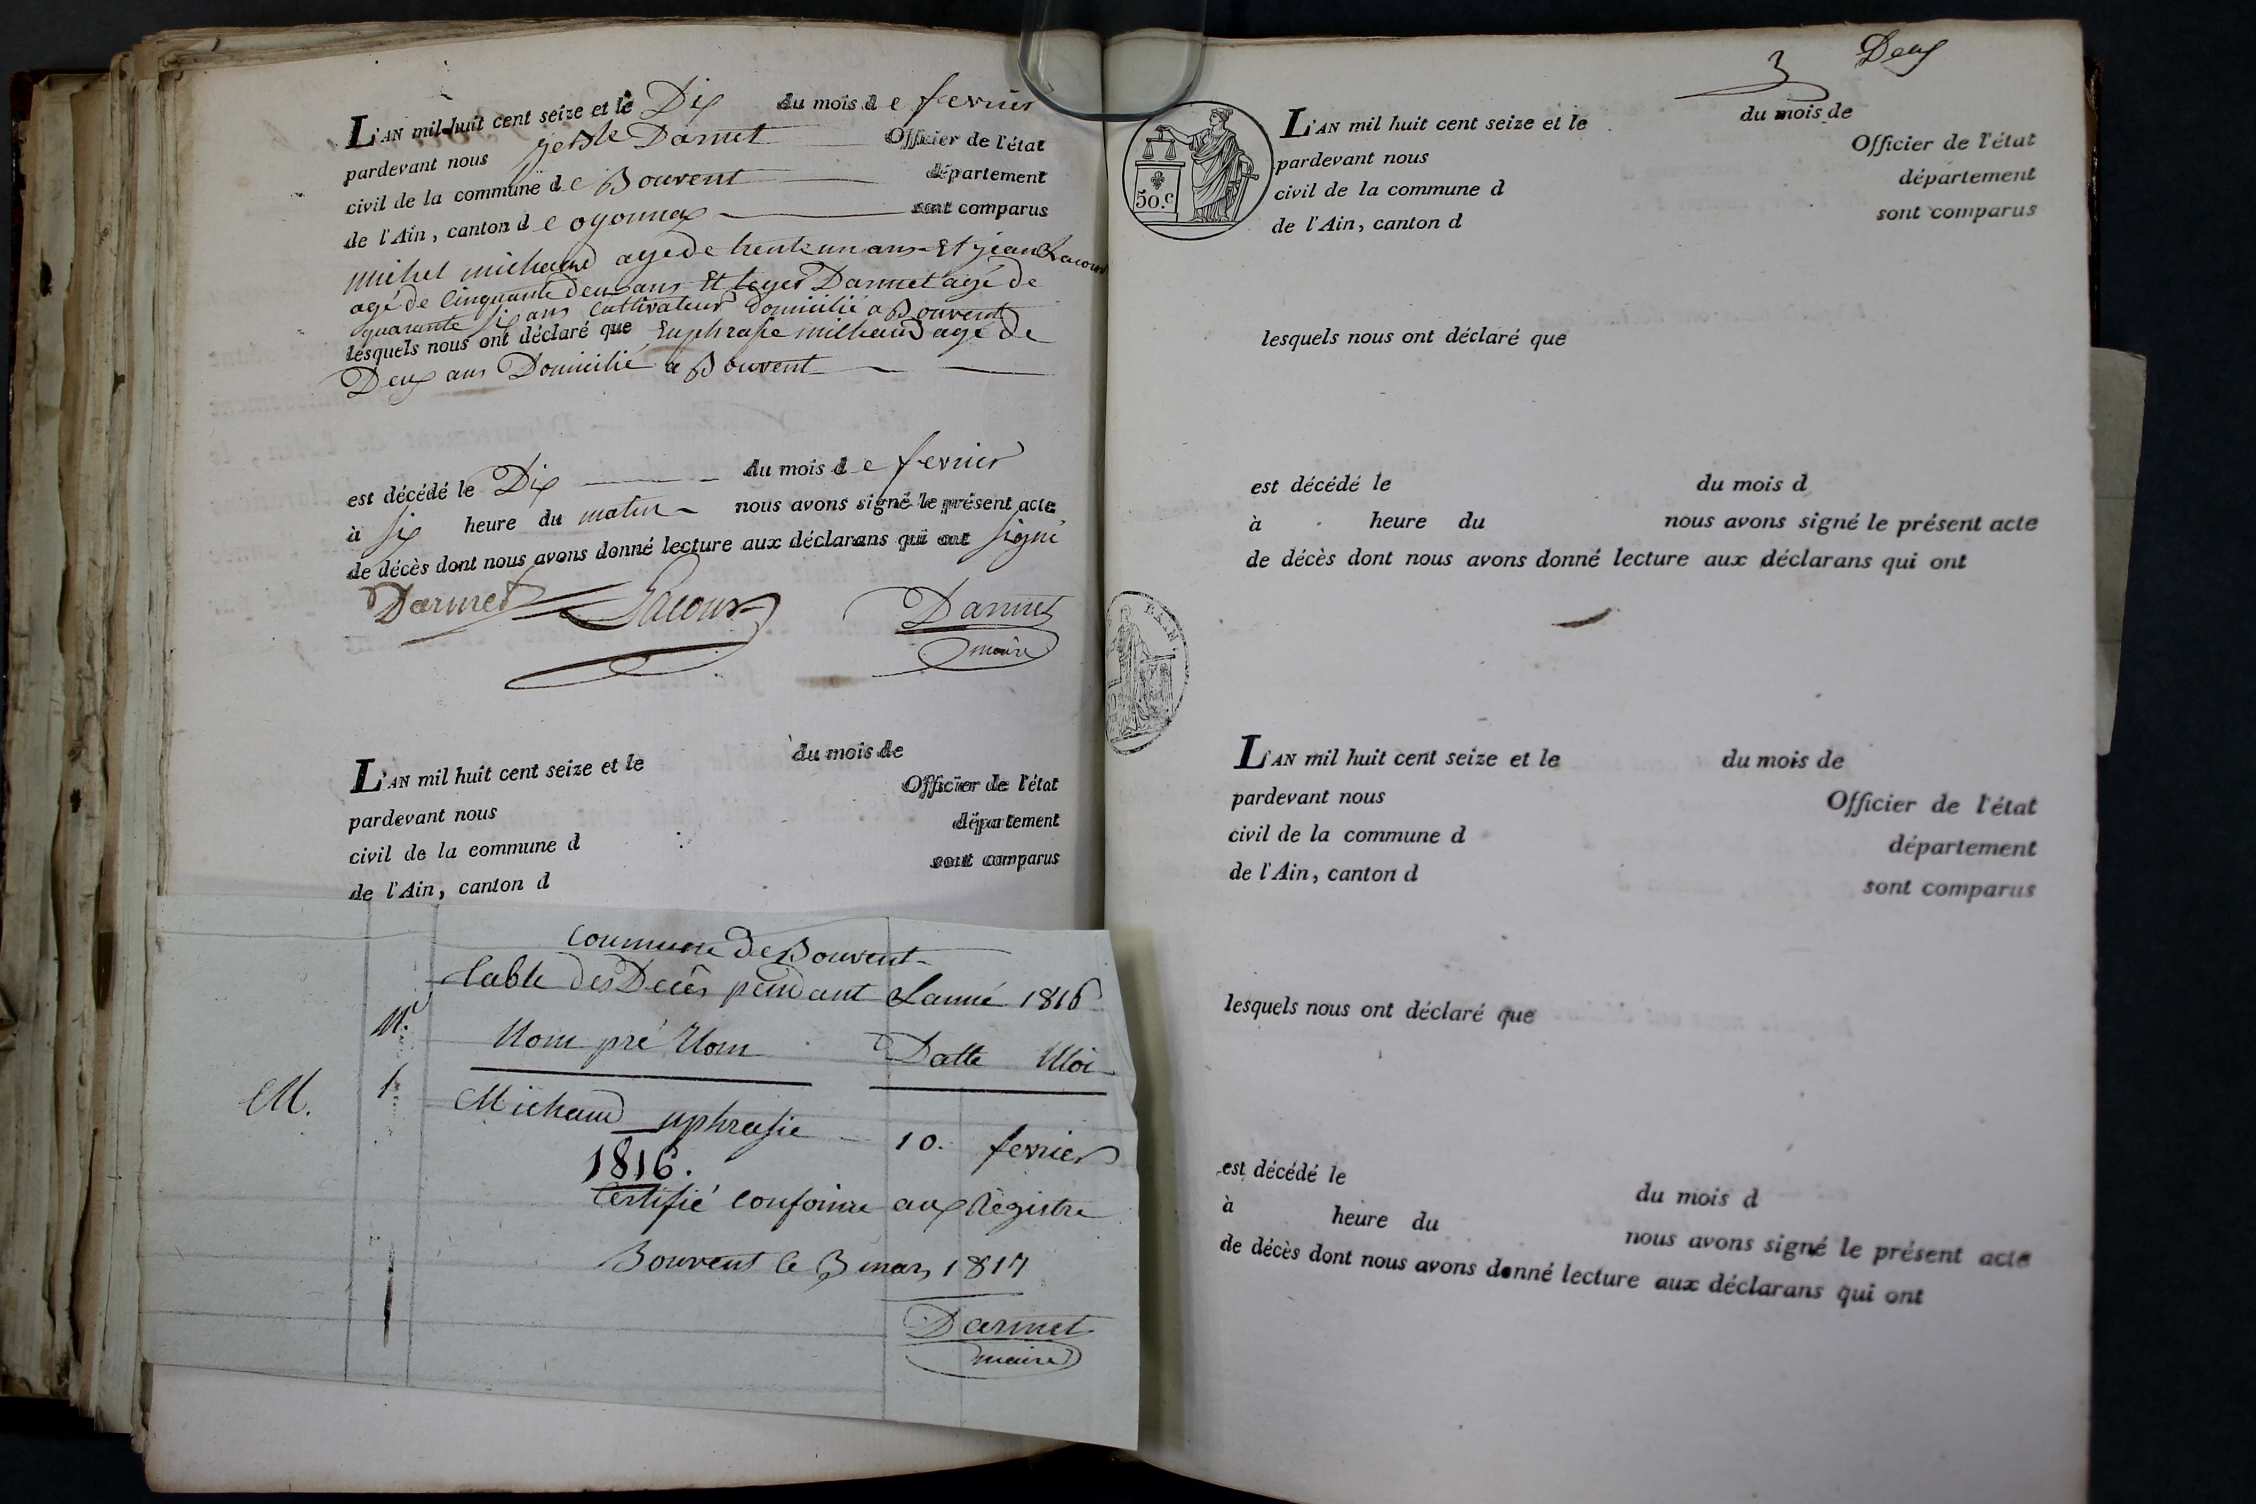 L'AN mil huit cent seize et le Dix du mois de fevrier
pardevant nous Darmet Officier de l'état
civil de la commune de Bouvent département
de l'Ain, canton de oyonnax sont comparus
michel michaud agé de trente un ans Et jean Lacour
agé de Cinquante deux ans Et Leger Darmet agé de
quarante six ans Cultivateur domicilié a Bouvent
lesquels nous ont déclaré que Euphrasie michaud agé de
Deux ans Domicilié a Bouvent
est décédé le Dix du mois de fevrier
à six heure du matin nous avons signé le présent acte
de décès dont nous avons donné lecture aux déclarans qui ont signé
Darmet Lacour Darmet
maire
L'AN mil huit cent seize et le du mois de
pardevant nous Officier de l'état
civil de la commune d département
de l'Ain, canton d sont comparus
Commune de Bouvent
table des Decês pendant Lannée 1816
N.º Nom pré Nom Datte Moi
M. 1. Michaud uphrasie 10. fevrier
1816.
Certifié conforme aux Régistre
Bouvent le 3 mars 1817
Darmet
maire
3 Deux
50.c
L'AN mil huit cent seize et le du mois de
pardevant nous Officier de l'état
civil de la commune d département
de l'Ain, canton d sont comparus
lesquels nous ont déclaré que
est décédé le du mois d
à heure du nous avons signé le présent acte
de décès dont nous avons donné lecture aux déclarans qui ont
L'AN mil huit cent seize et le du mois de
pardevant nous Officier de l'état
civil de la commune d département
de l'Ain, canton d sont comparus
lesquels nous ont déclaré que
est décédé le du mois d
à heure du nous avons signé le présent acte
de décès dont nous avons donné lecture aux déclarans qui ont